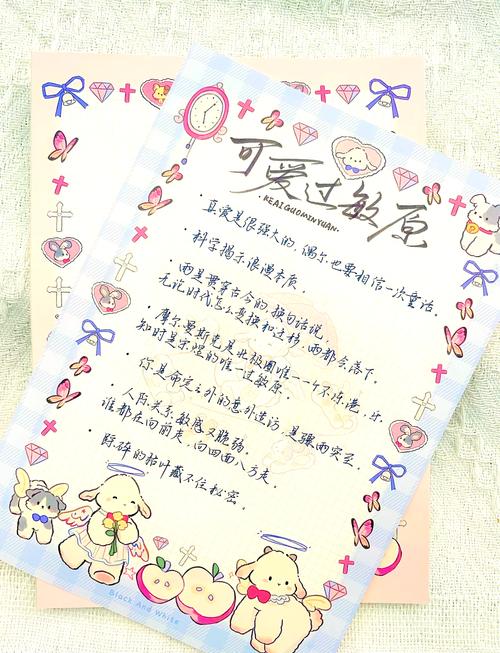 可爱过敏原
·KEAIGUOMINYUAN·
· 真爱是很强大的，偶尔也要相信一次童话。
· 科学揭示浪漫本质。
· 雨是贯穿古今的，换句话说，
无论时代怎么变换和迁移，雨都会落下。
· 摩尔曼斯克是北极圈唯一一个不冻港，乐
知时是宋煜的唯一过敏原。
· 你是命定之外的意外造访，是骤雨突至。
· 人际关系敏感又脆弱，
谁都在向前走，向四面八方走。
· 踩碎的枯叶藏不住秘密。
Black And White